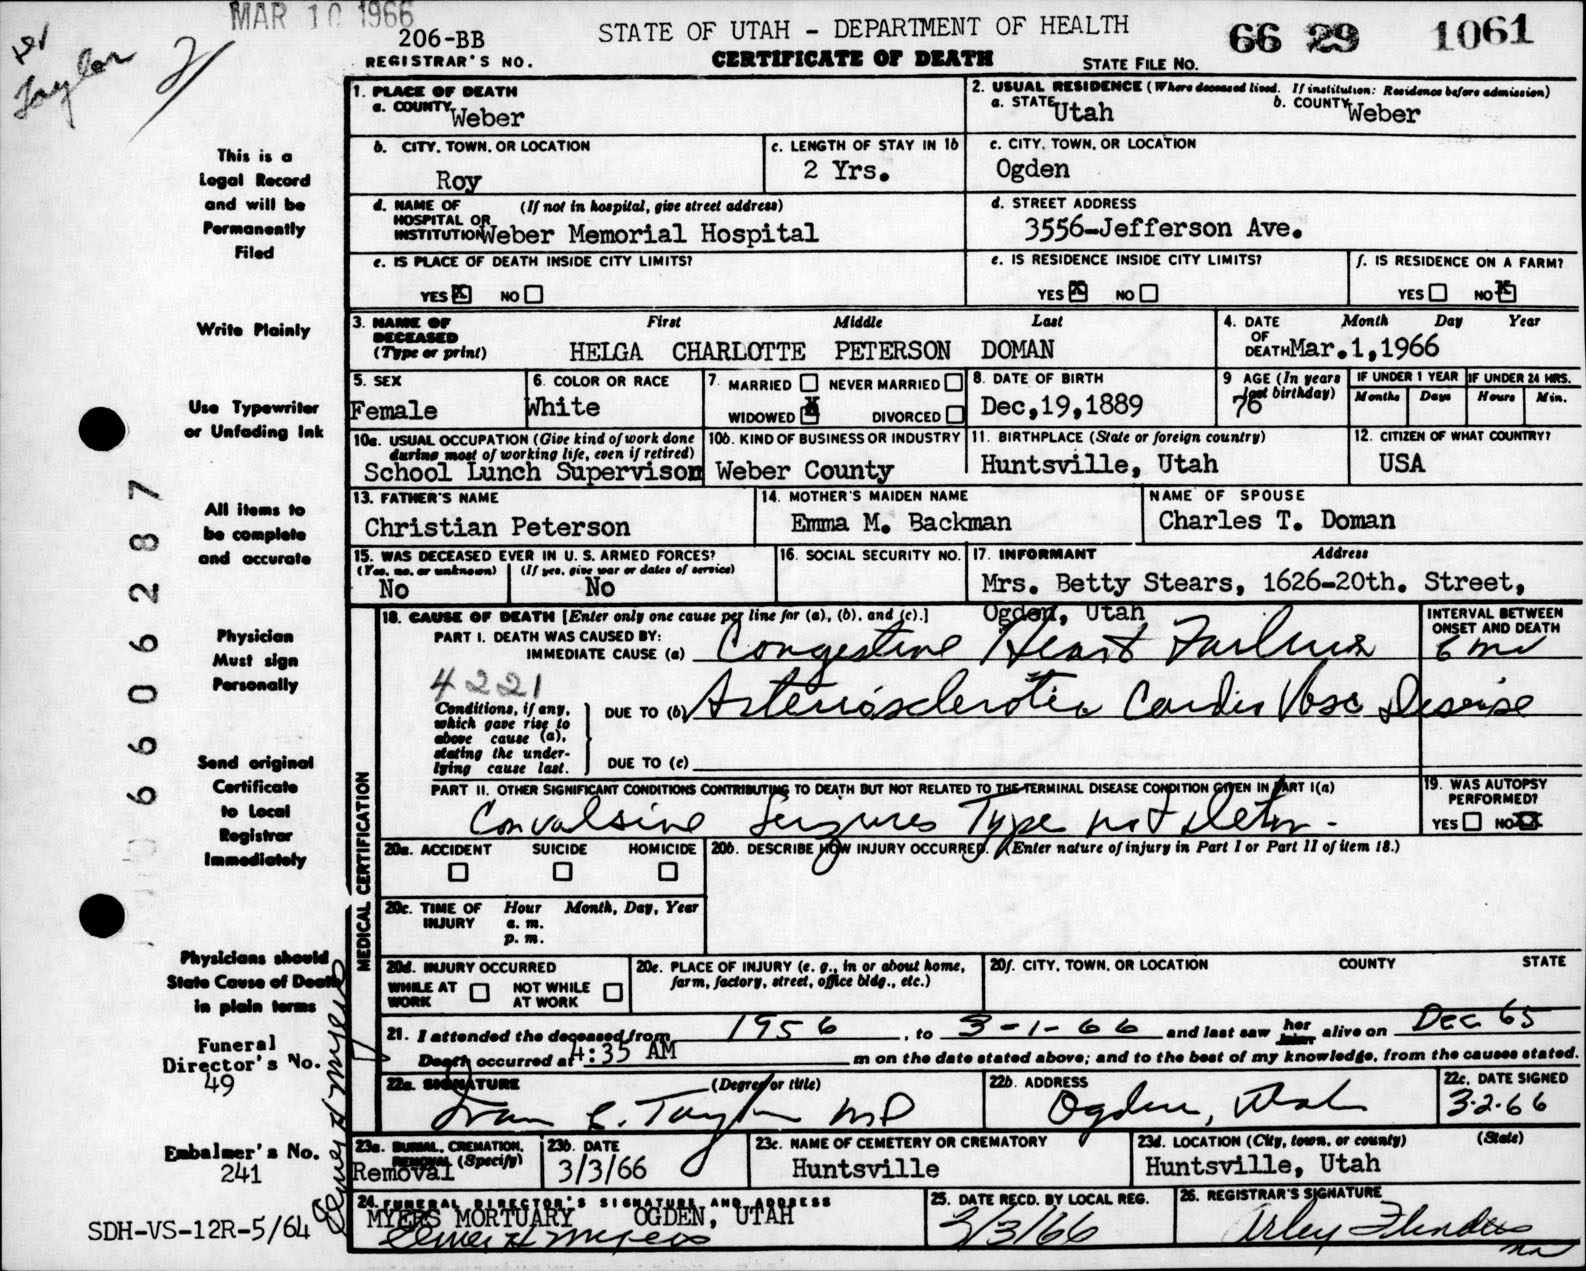 MAR 10 1966
206-BB
REGISTRAR'S NO.
STATE OF UTAH - DEPARTMENT OF HEALTH
CERTIFICATE OF DEATH
STATE FILE NO.
66 29 1061
Taylor 21
This is a
Legal Record
and will be
Permanently
Filed
Write Plainly
Use Typewriter
or Unfading Ink
All items to
be complete
and accurate
Physician
Must sign
Personally
Send original
Certificate
to Local
Registrar
Immediately
Physicians should
State Cause of Death
in plain terms
Funeral
Director's No.
49
Embalmer's No.
241
SDH-VS-12R-5/64
66 06287
Elmer H Myers
1. PLACE OF DEATH
a. COUNTY Weber
2. USUAL RESIDENCE (Where deceased lived. If institution: Residence before admission)
a. STATE Utah b. COUNTY Weber
b. CITY, TOWN, OR LOCATION
Roy
c. LENGTH OF STAY IN 1b
2 Yrs.
c. CITY, TOWN, OR LOCATION
Ogden
d. NAME OF (If not in hospital, give street address)
HOSPITAL OR
INSTITUTION Weber Memorial Hospital
d. STREET ADDRESS
3556-Jefferson Ave.
e. IS PLACE OF DEATH INSIDE CITY LIMITS?
YES X NO
e. IS RESIDENCE INSIDE CITY LIMITS?
YES X NO
f. IS RESIDENCE ON A FARM?
YES NO X
3. NAME OF DECEASED First Middle Last
(Type or print) HELGA CHARLOTTE PETERSON DOMAN
4. DATE OF DEATH Month Day Year
Mar.1,1966
5. SEX
Female
6. COLOR OR RACE
White
7. MARRIED NEVER MARRIED
WIDOWED X DIVORCED
8. DATE OF BIRTH
Dec,19,1889
9 AGE (In years last birthday)
76
IF UNDER 1 YEAR
Months Days
IF UNDER 24 HRS.
Hours Min.
10a. USUAL OCCUPATION (Give kind of work done
during most of working life, even if retired)
School Lunch Supervison
10b. KIND OF BUSINESS OR INDUSTRY
Weber County
11. BIRTHPLACE (State or foreign country)
Huntsville, Utah
12. CITIZEN OF WHAT COUNTRY?
USA
13. FATHER'S NAME
Christian Peterson
14. MOTHER'S MAIDEN NAME
Emma M. Backman
NAME OF SPOUSE
Charles T. Doman
15. WAS DECEASED EVER IN U. S. ARMED FORCES?
(Yes, no, or unknown) (If yes, give war or dates of service)
No No
16. SOCIAL SECURITY NO.
17. INFORMANT Address
Mrs. Betty Stears, 1626-20th. Street,
Ogden, Utah
MEDICAL CERTIFICATION
18. CAUSE OF DEATH [Enter only one cause per line for (a), (b), and (c).]
INTERVAL BETWEEN
ONSET AND DEATH
PART I. DEATH WAS CAUSED BY:
IMMEDIATE CAUSE (a) Congestive Heart Failure 6 mo
4221
Conditions, if any,
which gave rise to
above cause (a),
stating the under-
lying cause last.
DUE TO (b) Arteriosclerotic Cardio Vasc Disease
DUE TO (c)
PART II. OTHER SIGNIFICANT CONDITIONS CONTRIBUTING TO DEATH BUT NOT RELATED TO THE TERMINAL DISEASE CONDITION GIVEN IN PART I(a)
Convulsive Seizures Type not deter.
19. WAS AUTOPSY
PERFORMED?
YES NO X
20a. ACCIDENT SUICIDE HOMICIDE
20b. DESCRIBE HOW INJURY OCCURRED. (Enter nature of injury in Part I or Part II of item 18.)
20c. TIME OF INJURY Hour Month, Day, Year
a. m.
p. m.
20d. INJURY OCCURRED
WHILE AT WORK NOT WHILE AT WORK
20e. PLACE OF INJURY (e. g., in or about home,
farm, factory, street, office bldg., etc.)
20f. CITY, TOWN, OR LOCATION COUNTY STATE
21. I attended the deceased from 1956, to 3-1-66 and last saw her him alive on Dec 65
Death occurred at 4:35 AM m on the date stated above; and to the best of my knowledge, from the causes stated.
22a. SIGNATURE (Degree or title)
Ivan C. Taylor MD
22b. ADDRESS
Ogden, Utah
22c. DATE SIGNED
3-2-66
23a. BURIAL, CREMATION,
REMOVAL (Specify)
Removal
23b. DATE
3/3/66
23c. NAME OF CEMETERY OR CREMATORY
Huntsville
23d. LOCATION (City, town, or county) (State)
Huntsville, Utah
24. FUNERAL DIRECTOR'S SIGNATURE AND ADDRESS
MYERS MORTUARY OGDEN, UTAH
Elmer H Myers
25. DATE RECD. BY LOCAL REG.
3/3/66
26. REGISTRAR'S SIGNATURE
Arley Flinders